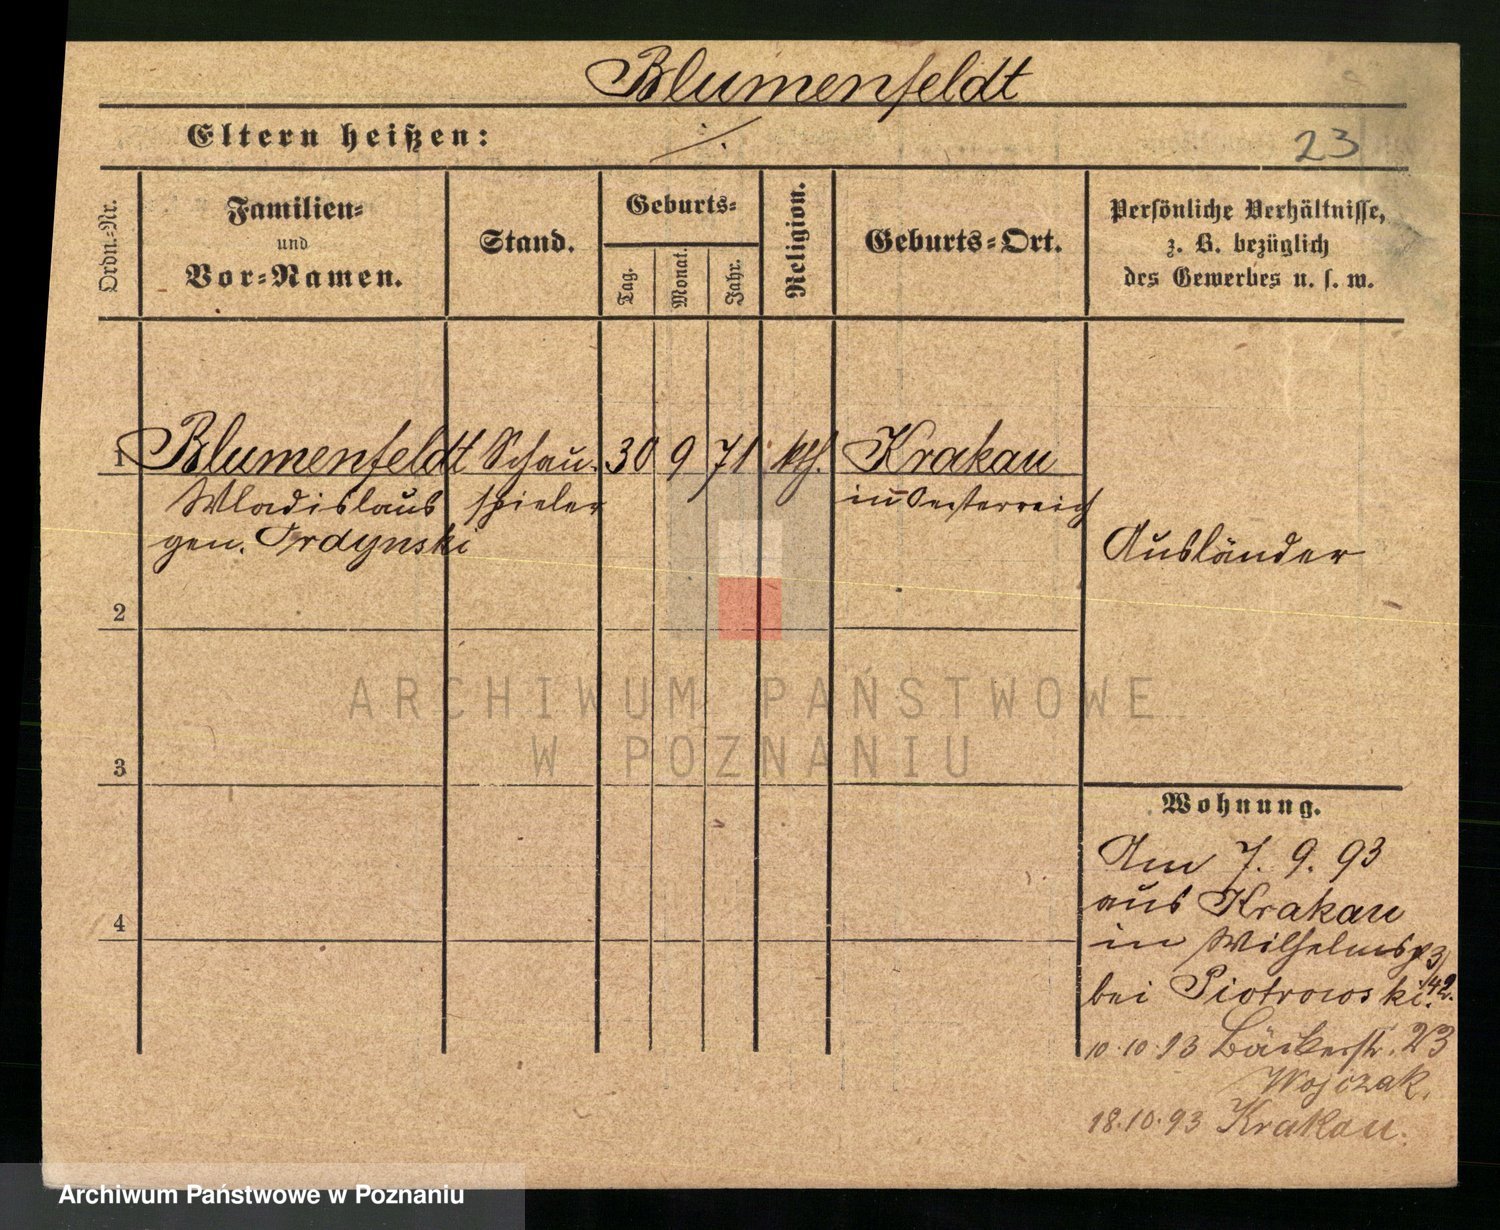 Blumenfeldt
Eltern heißen: ./.
23
Ordn.-Nr.
Familien-
und
Vor-Namen.
Stand.
Geburts-
Tag.
Monat.
Jahr.
Religion.
Geburts-Ort.
Persönliche Verhältnisse,
z. B. bezüglich
des Gewerbes u. s. w.
1 Blumenfeldt Schau- 30 9 71 kth. Krakau
Wladislaus spieler in Oesterreich
gen. Ordynski
Ausländer
2
ARCHIWUM PAŃSTWOWE
W POZNANIU
3
Wohnung.
Am 7. 9. 93
aus Krakau
4
in Wilhelmsp 3
bei Piotrowski.
10.10.93 Bäckerstr. 23
Wojczak.
18.10.93 Krakau.
Archiwum Państwowe w Poznaniu